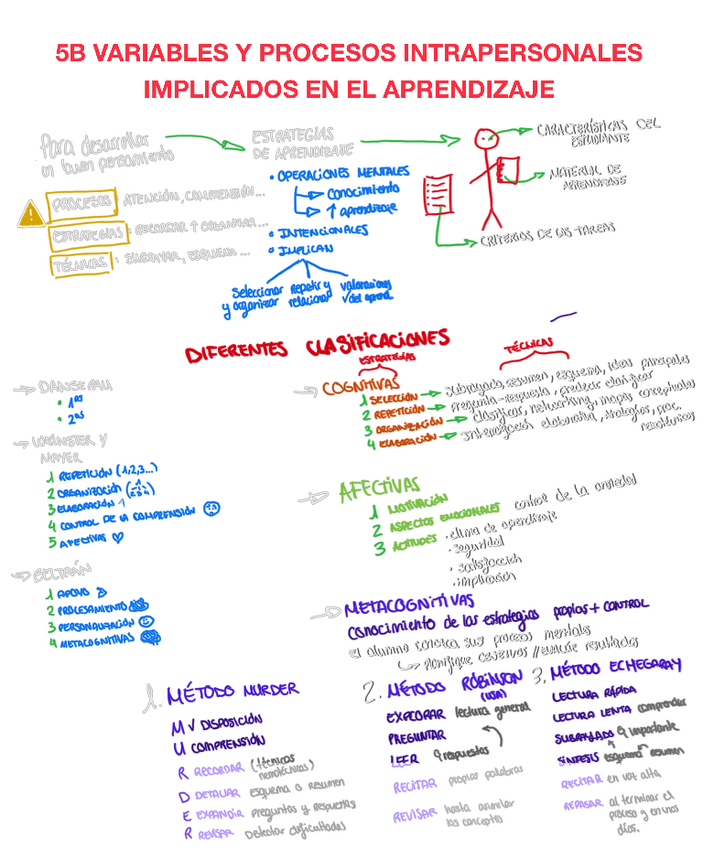 5B VARIABLES Y PROCESOS INTRAPERSONALES
IMPLICADOS EN EL APRENDIZAJE
Para desarrollar
un buen pensamiento
ESTRATEGIAS
DE APRENDIZAJE
CARACTERÍSTICAS DEL
ESTUDIANTE
MATERIAL DE
APRENDIZAJE
CRITERIOS DE LAS TAREAS
PROCESOS: ATENCIÓN, COMPRENSIÓN...
ESTRATEGIAS: RECORDAR ↑ ORGANIZAR...
TÉCNICAS: SUBRAYAR, ESQUEMA...
• OPERACIONES MENTALES
conocimiento
↑ aprendizaje
• INTENCIONALES
• IMPLICAN
Seleccionar
y organizar
repetir y
relacionar
valoraciones
del aprend.
DIFERENTES CLASIFICACIONES
ESTRATEGIAS
TÉCNICAS
→ DANSEREAU
• 1as
• 2as
→ WEINSTEIN Y
MAYER
1 REPETICIÓN (1,2,3...)
2 ORGANIZACIÓN
3 ELABORACIÓN
4 CONTROL DE LA COMPRENSIÓN
5 AFECTIVAS ♡
→ BELTRÁN
1 APOYO
2 PROCESAMIENTO
3 PERSONALIZACIÓN
4 METACOGNITIVAS
→ COGNITIVAS
1 SELECCIÓN → subrayado, resumen, esquema, ideas principales
2 REPETICIÓN → pregunta-respuesta, predecir clarificar
3 ORGANIZACIÓN → clasificar, networking, mapas conceptuales
4 ELABORACIÓN → interrogación elaborativa, analogías, proc.
mnotécnicos
→ AFECTIVAS
1 MOTIVACIÓN
2 ASPECTOS EMOCIONALES control de la ansiedad
3 ACTITUDES • clima de aprendizaje
• seguridad
• satisfacción
• implicación
→ METACOGNITIVAS
conocimiento de las estrategias propias + CONTROL
el alumno conozca sus procesos mentales
↳ planifique objetivos // evalúe resultados
1. MÉTODO MURDER
M ✓ DISPOSICIÓN
U COMPRENSIÓN
R RECORDAR (técnicas
nemotécnicas)
D DETALLAR esquema o resumen
E EXPANDIR preguntas y respuestas
R REVISAR Detectar dificultades
2. MÉTODO ROBINSON
(USA)
EXPLORAR lectura general
PREGUNTAR
LEER respuestas
RECITAR propias palabras
REVISAR hasta asimilar
los conceptos
3. MÉTODO ECHEGARAY
LECTURA RÁPIDA
LECTURA LENTA comprender
SUBRAYADO importante
SÍNTESIS esquema resumen
RECITAR en voz alta
REPASAR al terminar el
proceso y en unos
días.